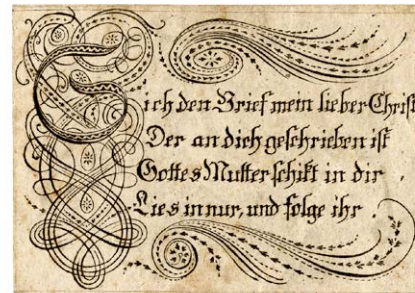 Sieh den Brief mein lieber Christ
Der an dich geschrieben ist
Gottes Mutter schikt in dir .
Lies in nur, und folge ihr .